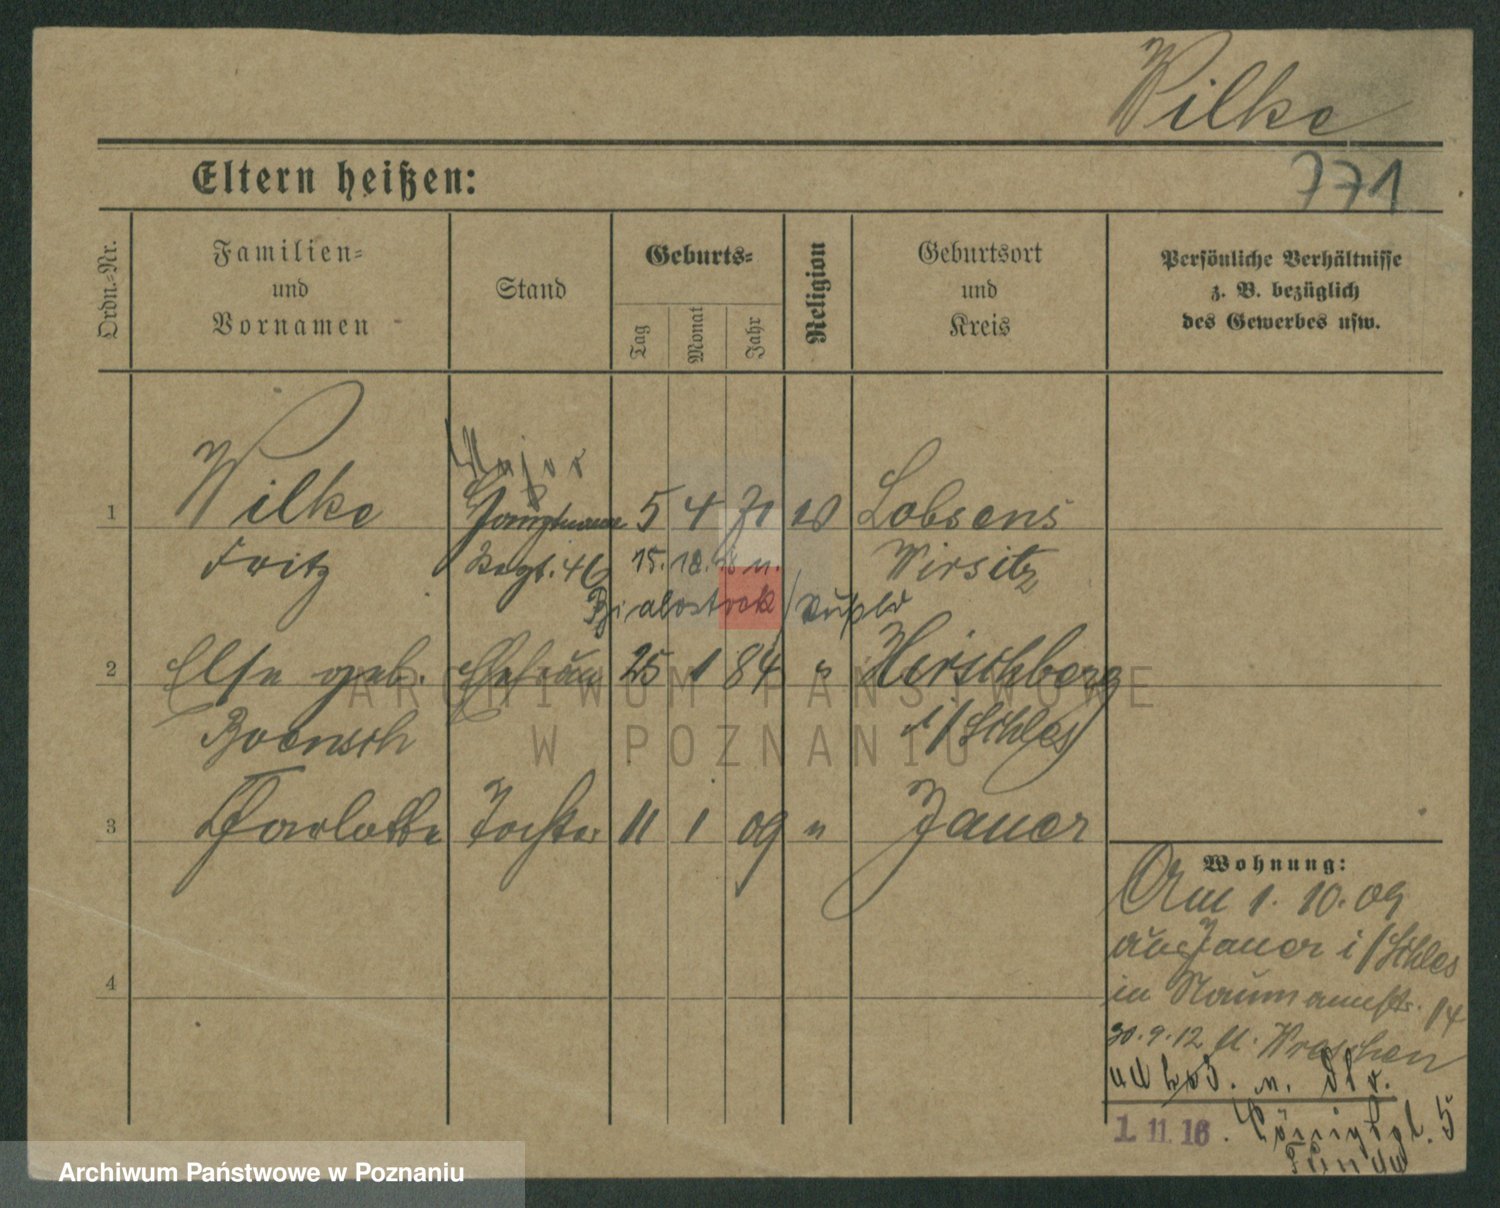 Wilke
771
Eltern heißen:
Ordn.-Nr.
Familien-
und
Vornamen
Stand
Geburts-
Tag
Monat
Jahr
Religion
Geburtsort
und
Kreis
Persönliche Verhältnisse
z. B. bezüglich
des Gewerbes usw.
Major
1 Wilke Hauptmann 5 4 71 Lobsens
Fritz Regt. 46 15. 12. n. Wirsitz
Bialostock / Rußld
2 Else geb. Ehefrau 25 1 84 " Hirschberg
Boensch i/Schles
3 Charlotte Tochter 11 1 09 " Jauer
4
Wohnung:
Am 1. 10. 09
aus Jauer i/Schles
in Naumannstr. 14
30.9.12 n. Wreschen
1. 11. 16. Königspl. 5
ARCHIWUM PAŃSTWOWE
W POZNANIU
Archiwum Państwowe w Poznaniu